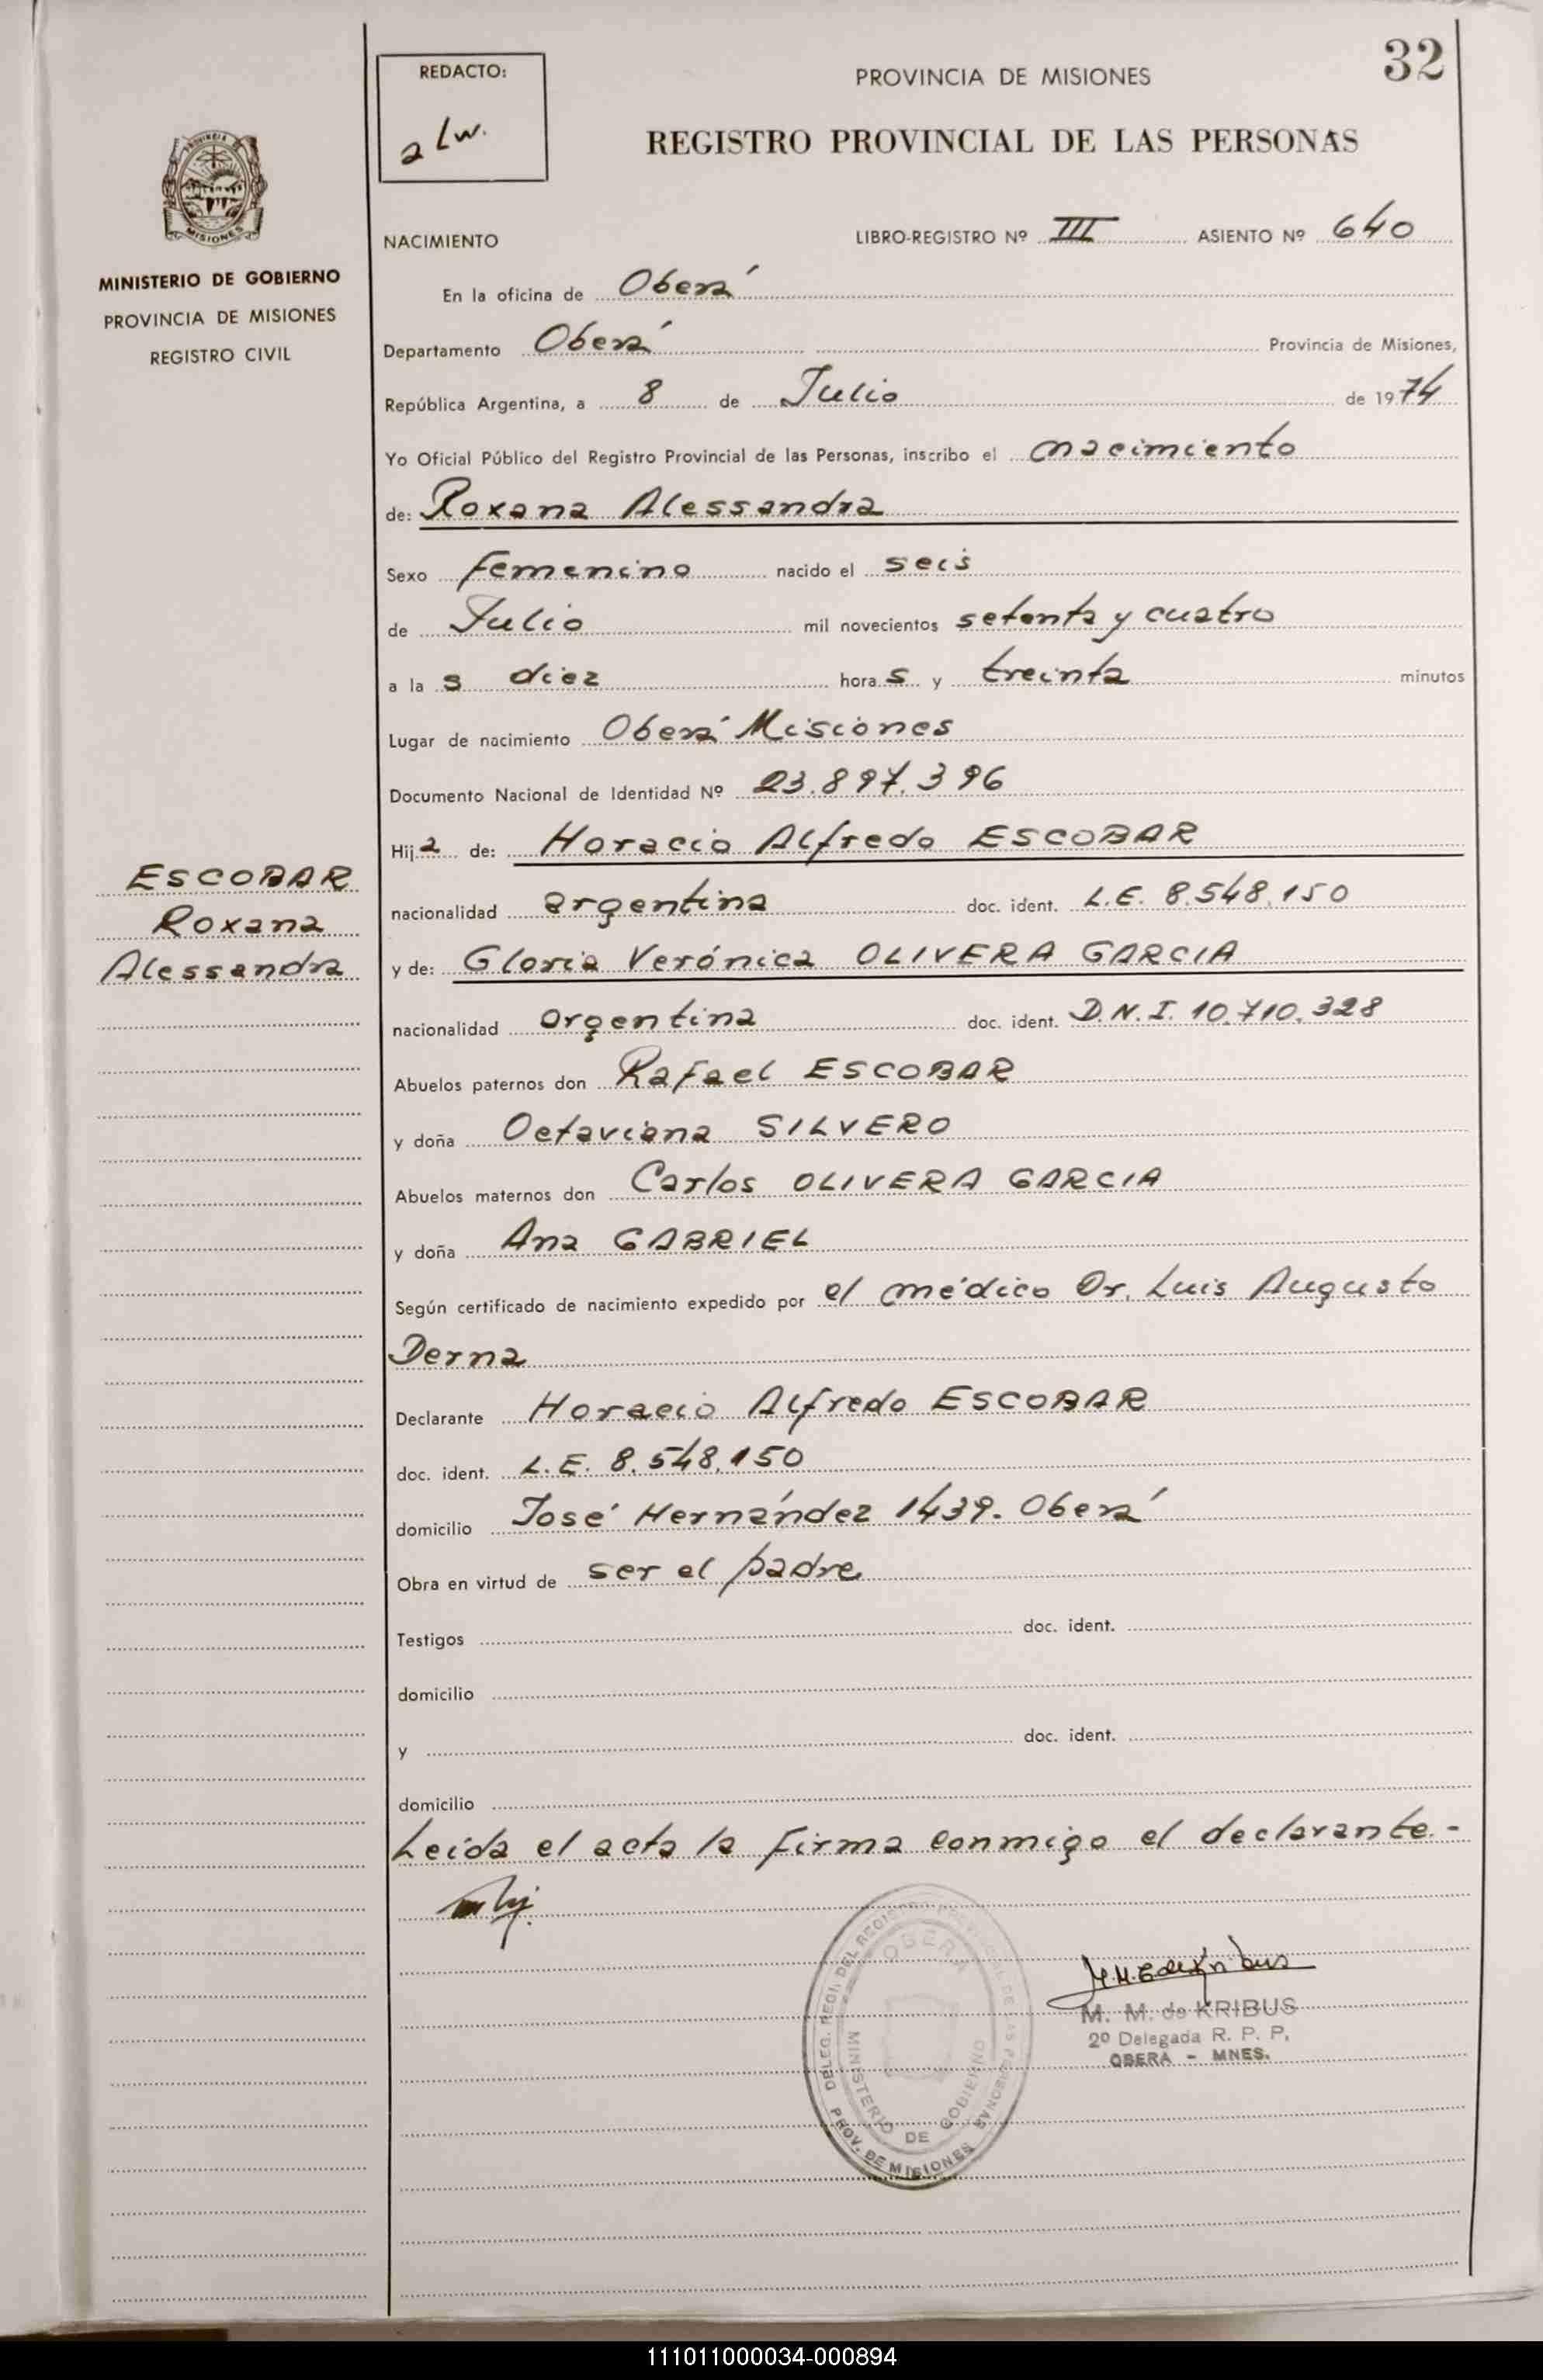 32
REDACTO:
PROVINCIA DE MISIONES
REGISTRO PROVINCIAL DE LAS PERSONAS
MISIONES
MINISTERIO DE GOBIERNO
PROVINCIA DE MISIONES
REGISTRO CIVIL
NACIMIENTO LIBRO-REGISTRO Nº III ASIENTO Nº 640
En la oficina de Oberá
Departamento Oberá Provincia de Misiones,
República Argentina, a 8 de Julio de 1974
Yo Oficial Público del Registro Provincial de las Personas, inscribo el nacimiento
de: Roxana Alessandra
Sexo femenino nacido el seis
de Julio mil novecientos setenta y cuatro
a la s diez hora s y treinta minutos
Lugar de nacimiento Oberá Misiones
Documento Nacional de Identidad Nº 23.897.396
Hija de: Horacio Alfredo ESCOBAR
ESCOBAR
Roxana
Alessandra
nacionalidad argentina doc. ident. L.E. 8.548.150
y de: Gloria Verónica OLIVERA GARCIA
nacionalidad argentina doc. ident. D.N.I. 10.710.328
Abuelos paternos don Rafael ESCOBAR
y doña Octaviana SILVERO
Abuelos maternos don Carlos OLIVERA GARCIA
y doña Ana GABRIEL
Según certificado de nacimiento expedido por el médico Dr. Luis Augusto
Derna
Declarante Horacio Alfredo ESCOBAR
doc. ident. L.E. 8.548.150
domicilio José Hernández 1439. Oberá
Obra en virtud de ser el padre
Testigos doc. ident.
domicilio
y doc. ident.
domicilio
Leída el acta la firma conmigo el declarante.-
DELEG. REGI. DEL REGISTRO PROVINCIAL DE LAS PERSONAS
OBERA
MINISTERIO DE GOBIERNO
PROV. DE MISIONES
M. M. de KRIBUS
2º Delegada R. P. P.
OBERA - MNES.
111011000034-000894